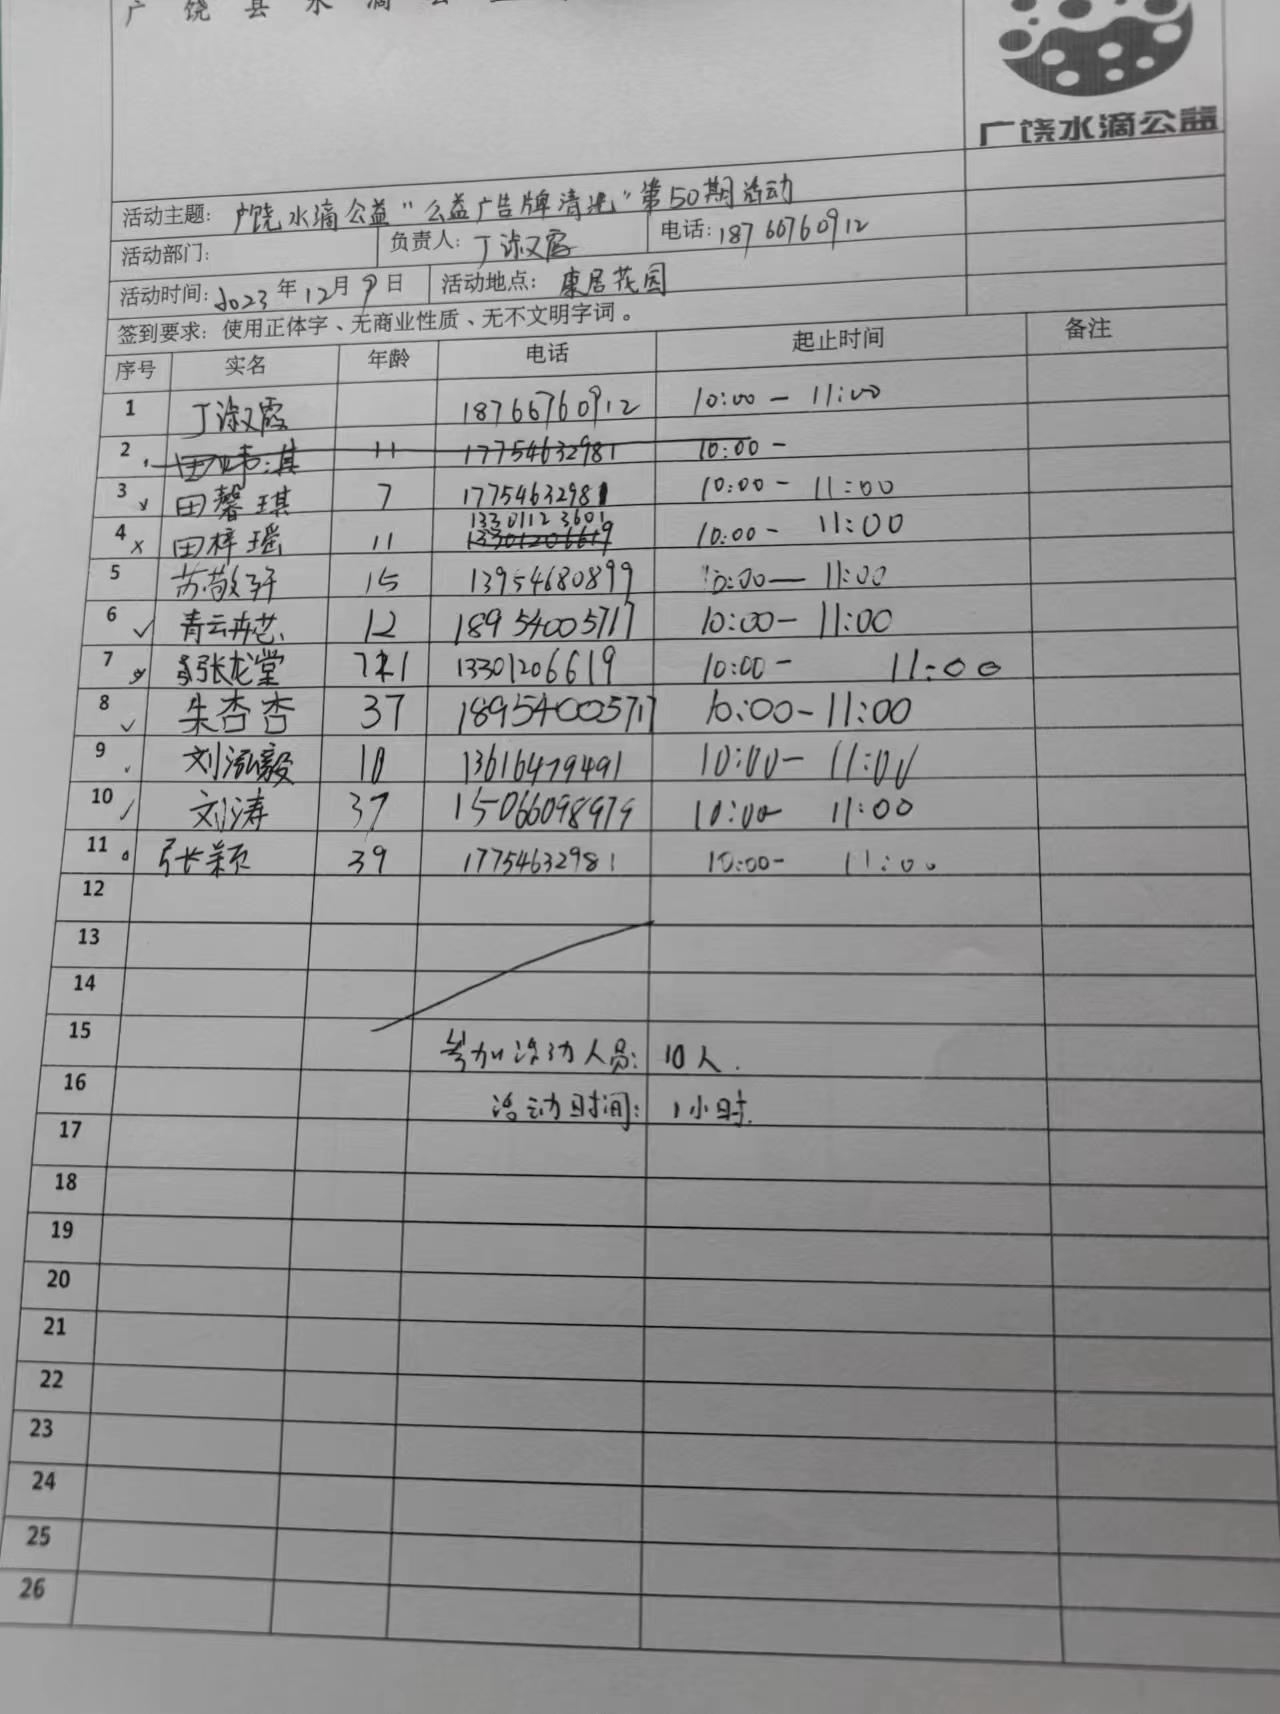 广饶县水滴公
广饶水滴公益
活动主题: 广饶水滴公益"公益广告牌清洗"第50期活动
活动部门: 负责人: 丁淑霞 电话: 18766760912
活动时间: 2023年12月9日 活动地点: 康居花园
签到要求: 使用正体字、无商业性质、无不文明字词。
序号 实名 年龄 电话 起止时间 备注
1 丁淑霞 18766760912 10:00 - 11:00
2 11 17754632981 10:00 -
3 x 田馨琪 7 17754632981 10:00 - 11:00
13301123601
4 x 田梓瑶 11 13301206619 10:00 - 11:00
5 苏敬轩 15 13954680899 10:00 — 11:00
6 ✓ 青云卉芯 12 18954005717 10:00 - 11:00
7 张龙堂 13301206619 10:00 - 11:00
8 ✓ 朱杏杏 37 18954005717 10:00 - 11:00
9 刘泓毅 10 13616479491 10:00 - 11:00
10 ✓ 刘涛 37 15066098979 10:00 - 11:00
11 张颖 39 17754632981 10:00 - 11:00
12
13
14
15 参加活动人员: 10人.
16 活动时间: 1小时.
17
18
19
20
21
22
23
24
25
26